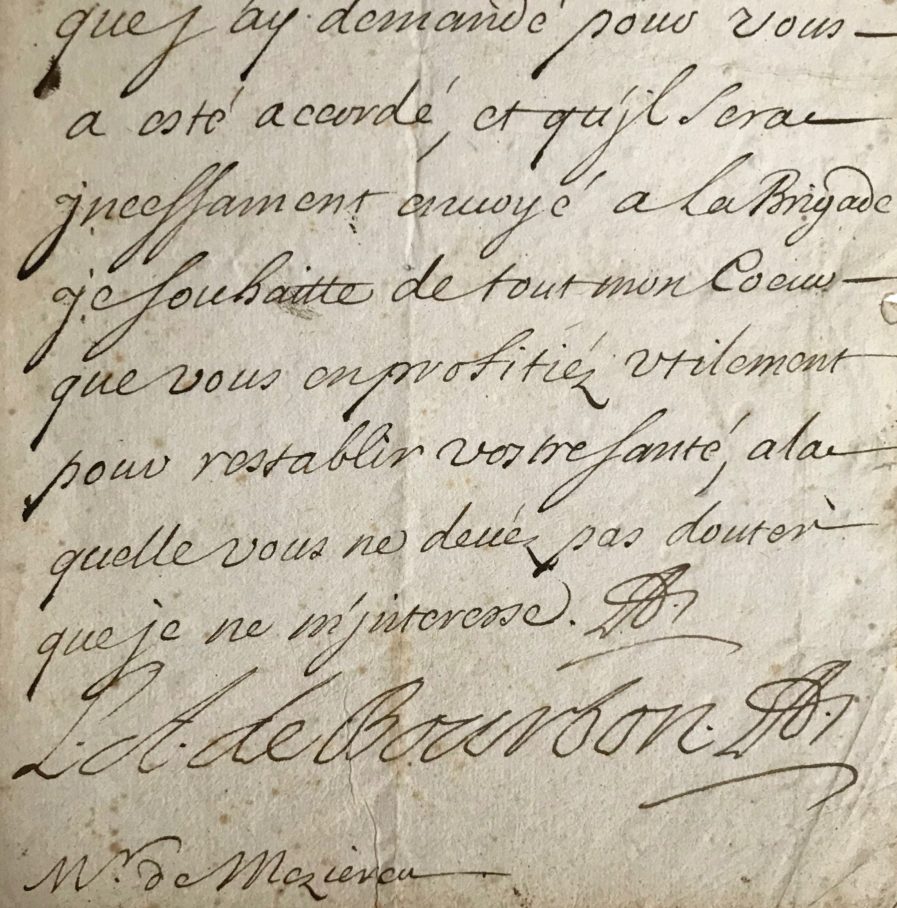 que j'ay demandé pour vous
a esté accordé, et qu'jl sera
jncessament envoyé a la Brigade
je souhaitte de tout mon Coeur
que vous en profitiéz vtilement
pour restablir vostre santé, a la
quelle vous ne deués pas douter
que je ne m'jnteresse.
L. A. de Bourbon.
Mr. de Mezieres